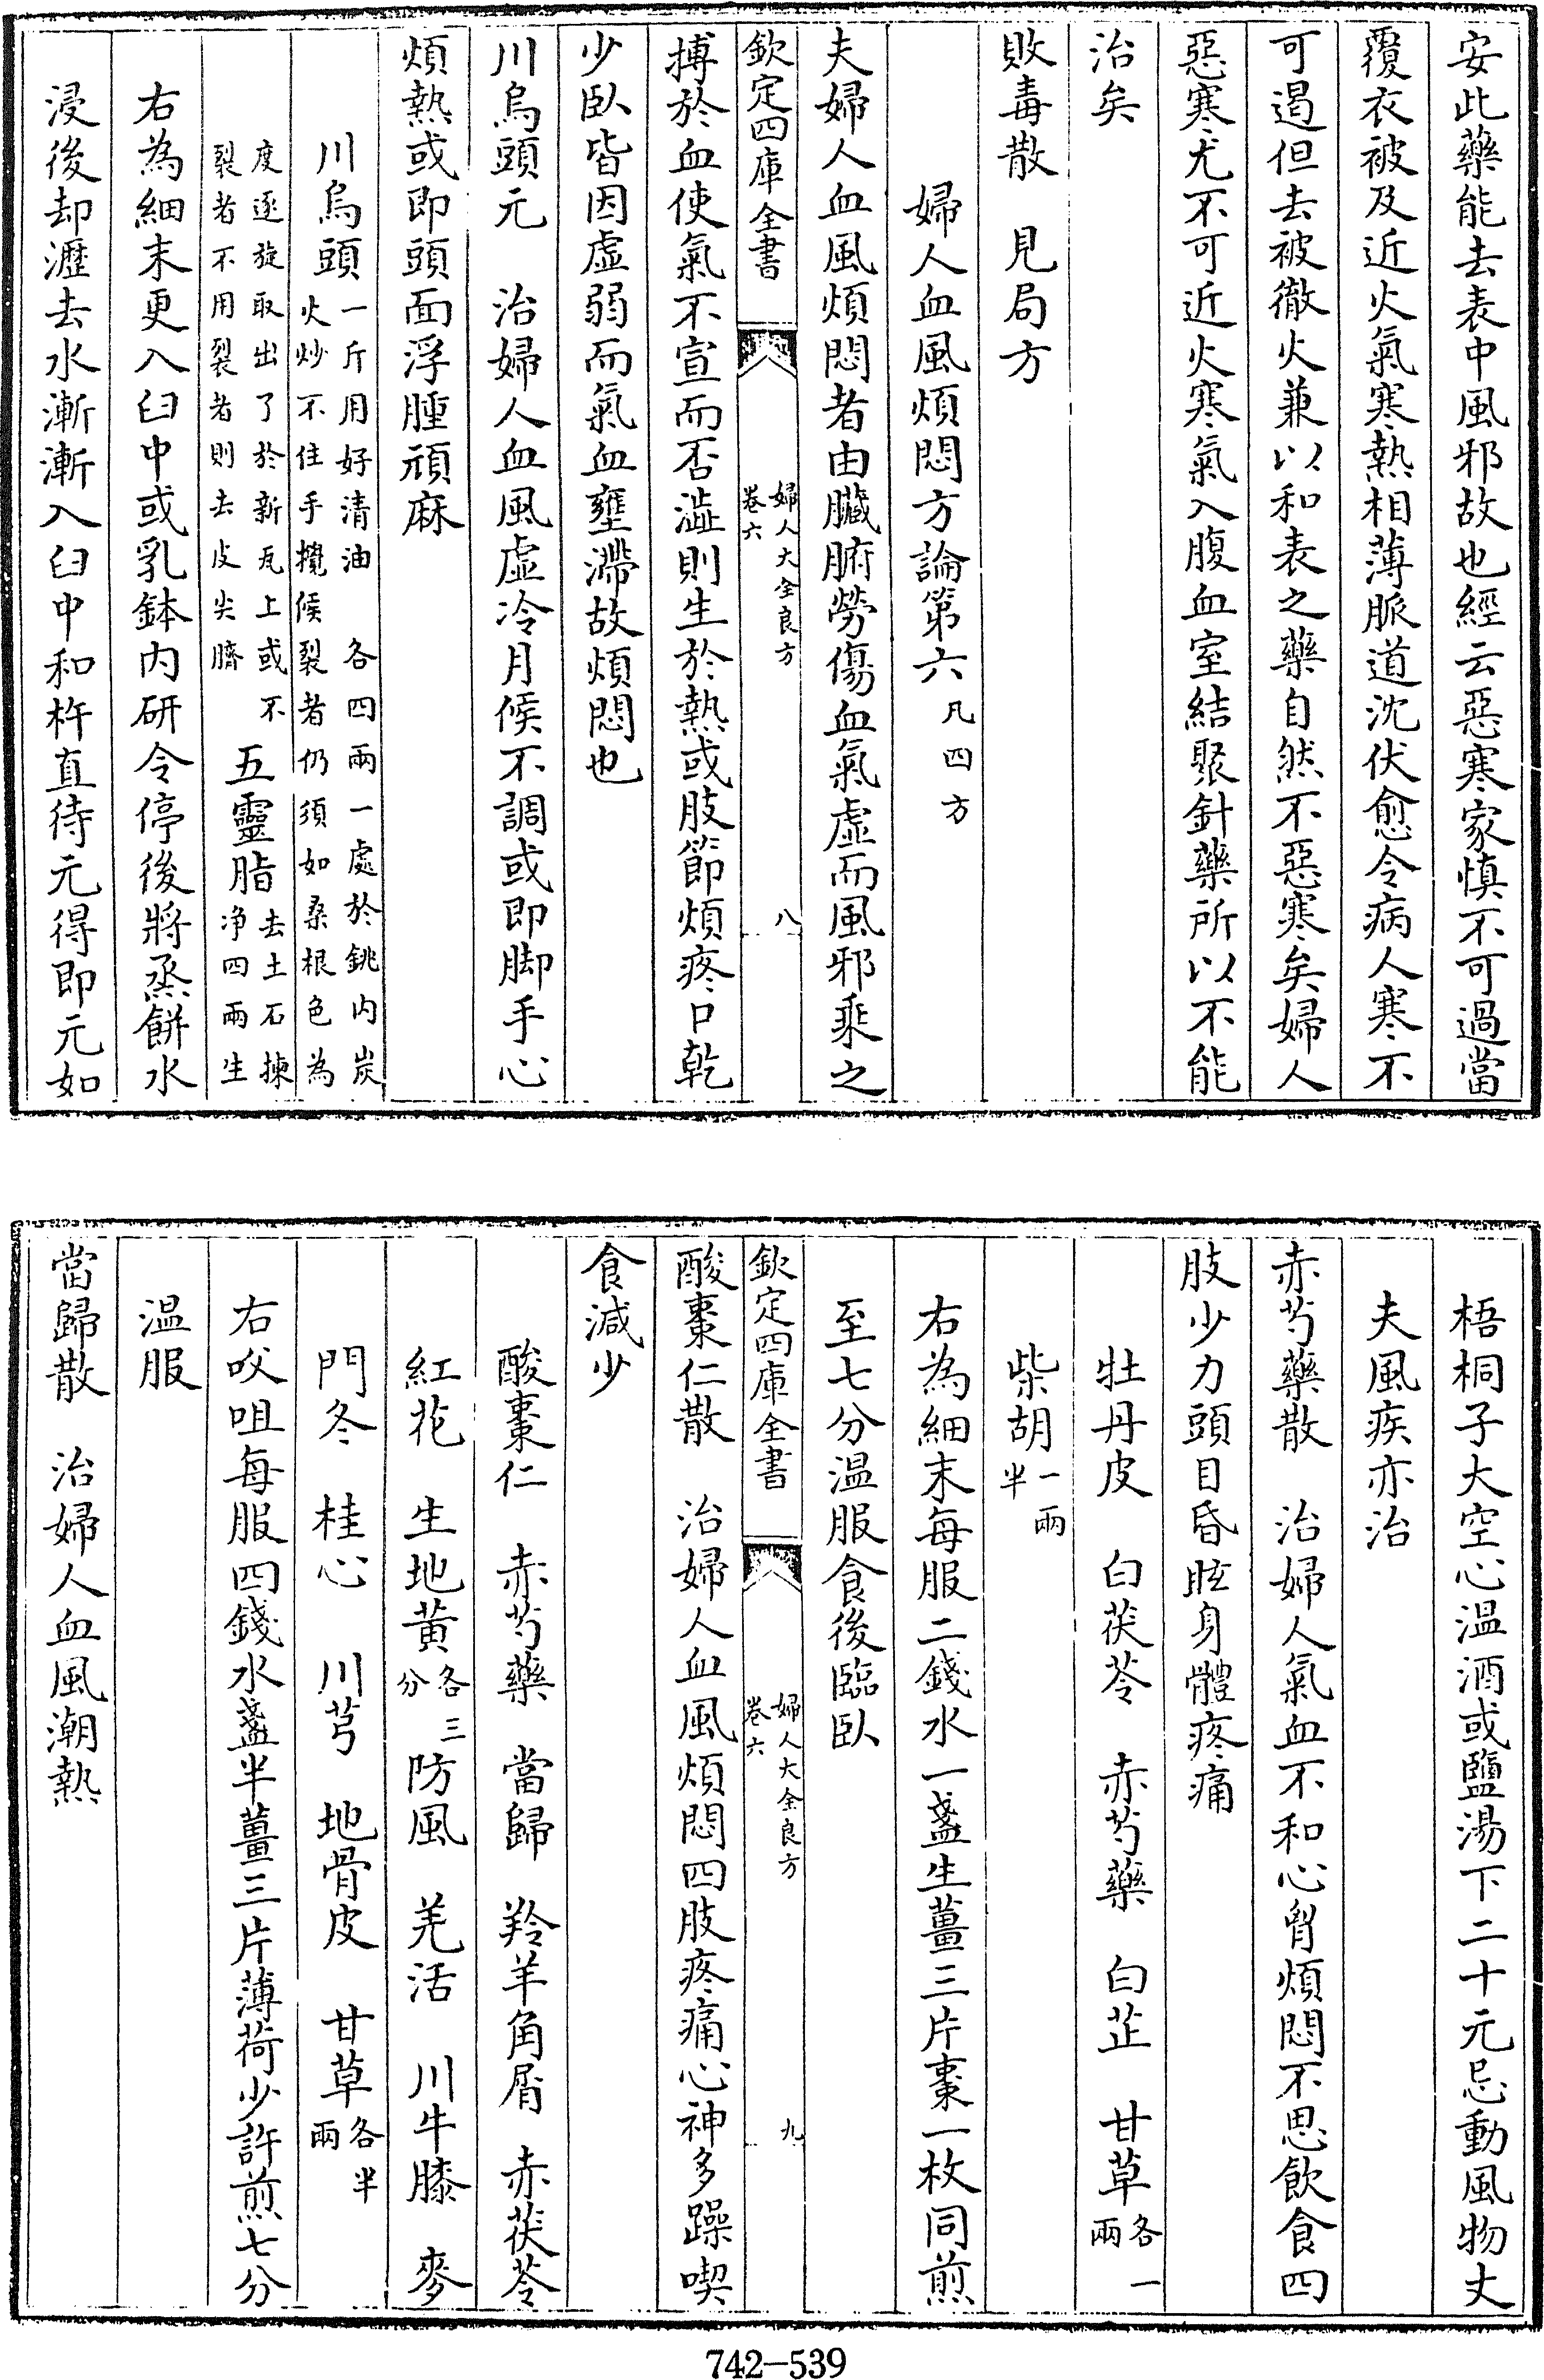 安此藥能去表中風邪故也經云惡寒家慎不可過當
覆衣被及近火氣寒熱相薄脈道沈伏愈令病人寒不
可遏但去被徹火兼以和表之藥自然不惡寒矣婦人
惡寒尤不可近火寒氣入腹血室結聚針藥所以不能
治矣
敗毒散　見局方
婦人血風煩悶方論第六凡四方
夫婦人血風煩悶者由臟腑勞傷血氣虛而風邪乘之
欽定四庫全書
婦人大全良方
卷六
八
搏於血使氣不宣而否澁則生於熱或肢節煩疼口乾
少臥皆因虛弱而氣血壅滯故煩悶也
川烏頭元　治婦人血風虛冷月候不調或即脚手心
煩熱或即頭面浮腫頑麻
川烏頭一斤用好清油　各四兩一處於銚内炭
火炒不住手攪候裂者仍須如桑根色為
度逐旋取出了於新瓦上或不
裂者不用裂者則去皮尖臍
五靈脂去土石揀
净四兩生
右為細末更入臼中或乳鉢内研令停後將烝餅水
浸後却瀝去水漸漸入臼中和杵直待元得即元如
梧桐子大空心温酒或鹽湯下二十元忌動風物丈
夫風疾亦治
赤芍藥散　治婦人氣血不和心胷煩悶不思飲食四
肢少力頭目昏眩身體疼痛
牡丹皮　白茯苓　赤芍藥　白芷　甘草各一
兩
柴胡一兩
半
右為細末每服二錢水一盞生薑三片棗一枚同煎
至七分温服食後臨臥
欽定四庫全書
婦人大全良方
卷六
九
酸棗仁散　治婦人血風煩悶四肢疼痛心神多躁喫
食減少
酸棗仁　赤芍藥　當歸　羚羊角屑　赤茯苓
紅花　生地黃各三
分　防風　羌活　川牛膝　麥
門冬　桂心　川芎　地骨皮　甘草各半
兩
右㕮咀每服四錢水盞半薑三片薄荷少許煎七分
温服
當歸散　治婦人血風潮熱
742—539